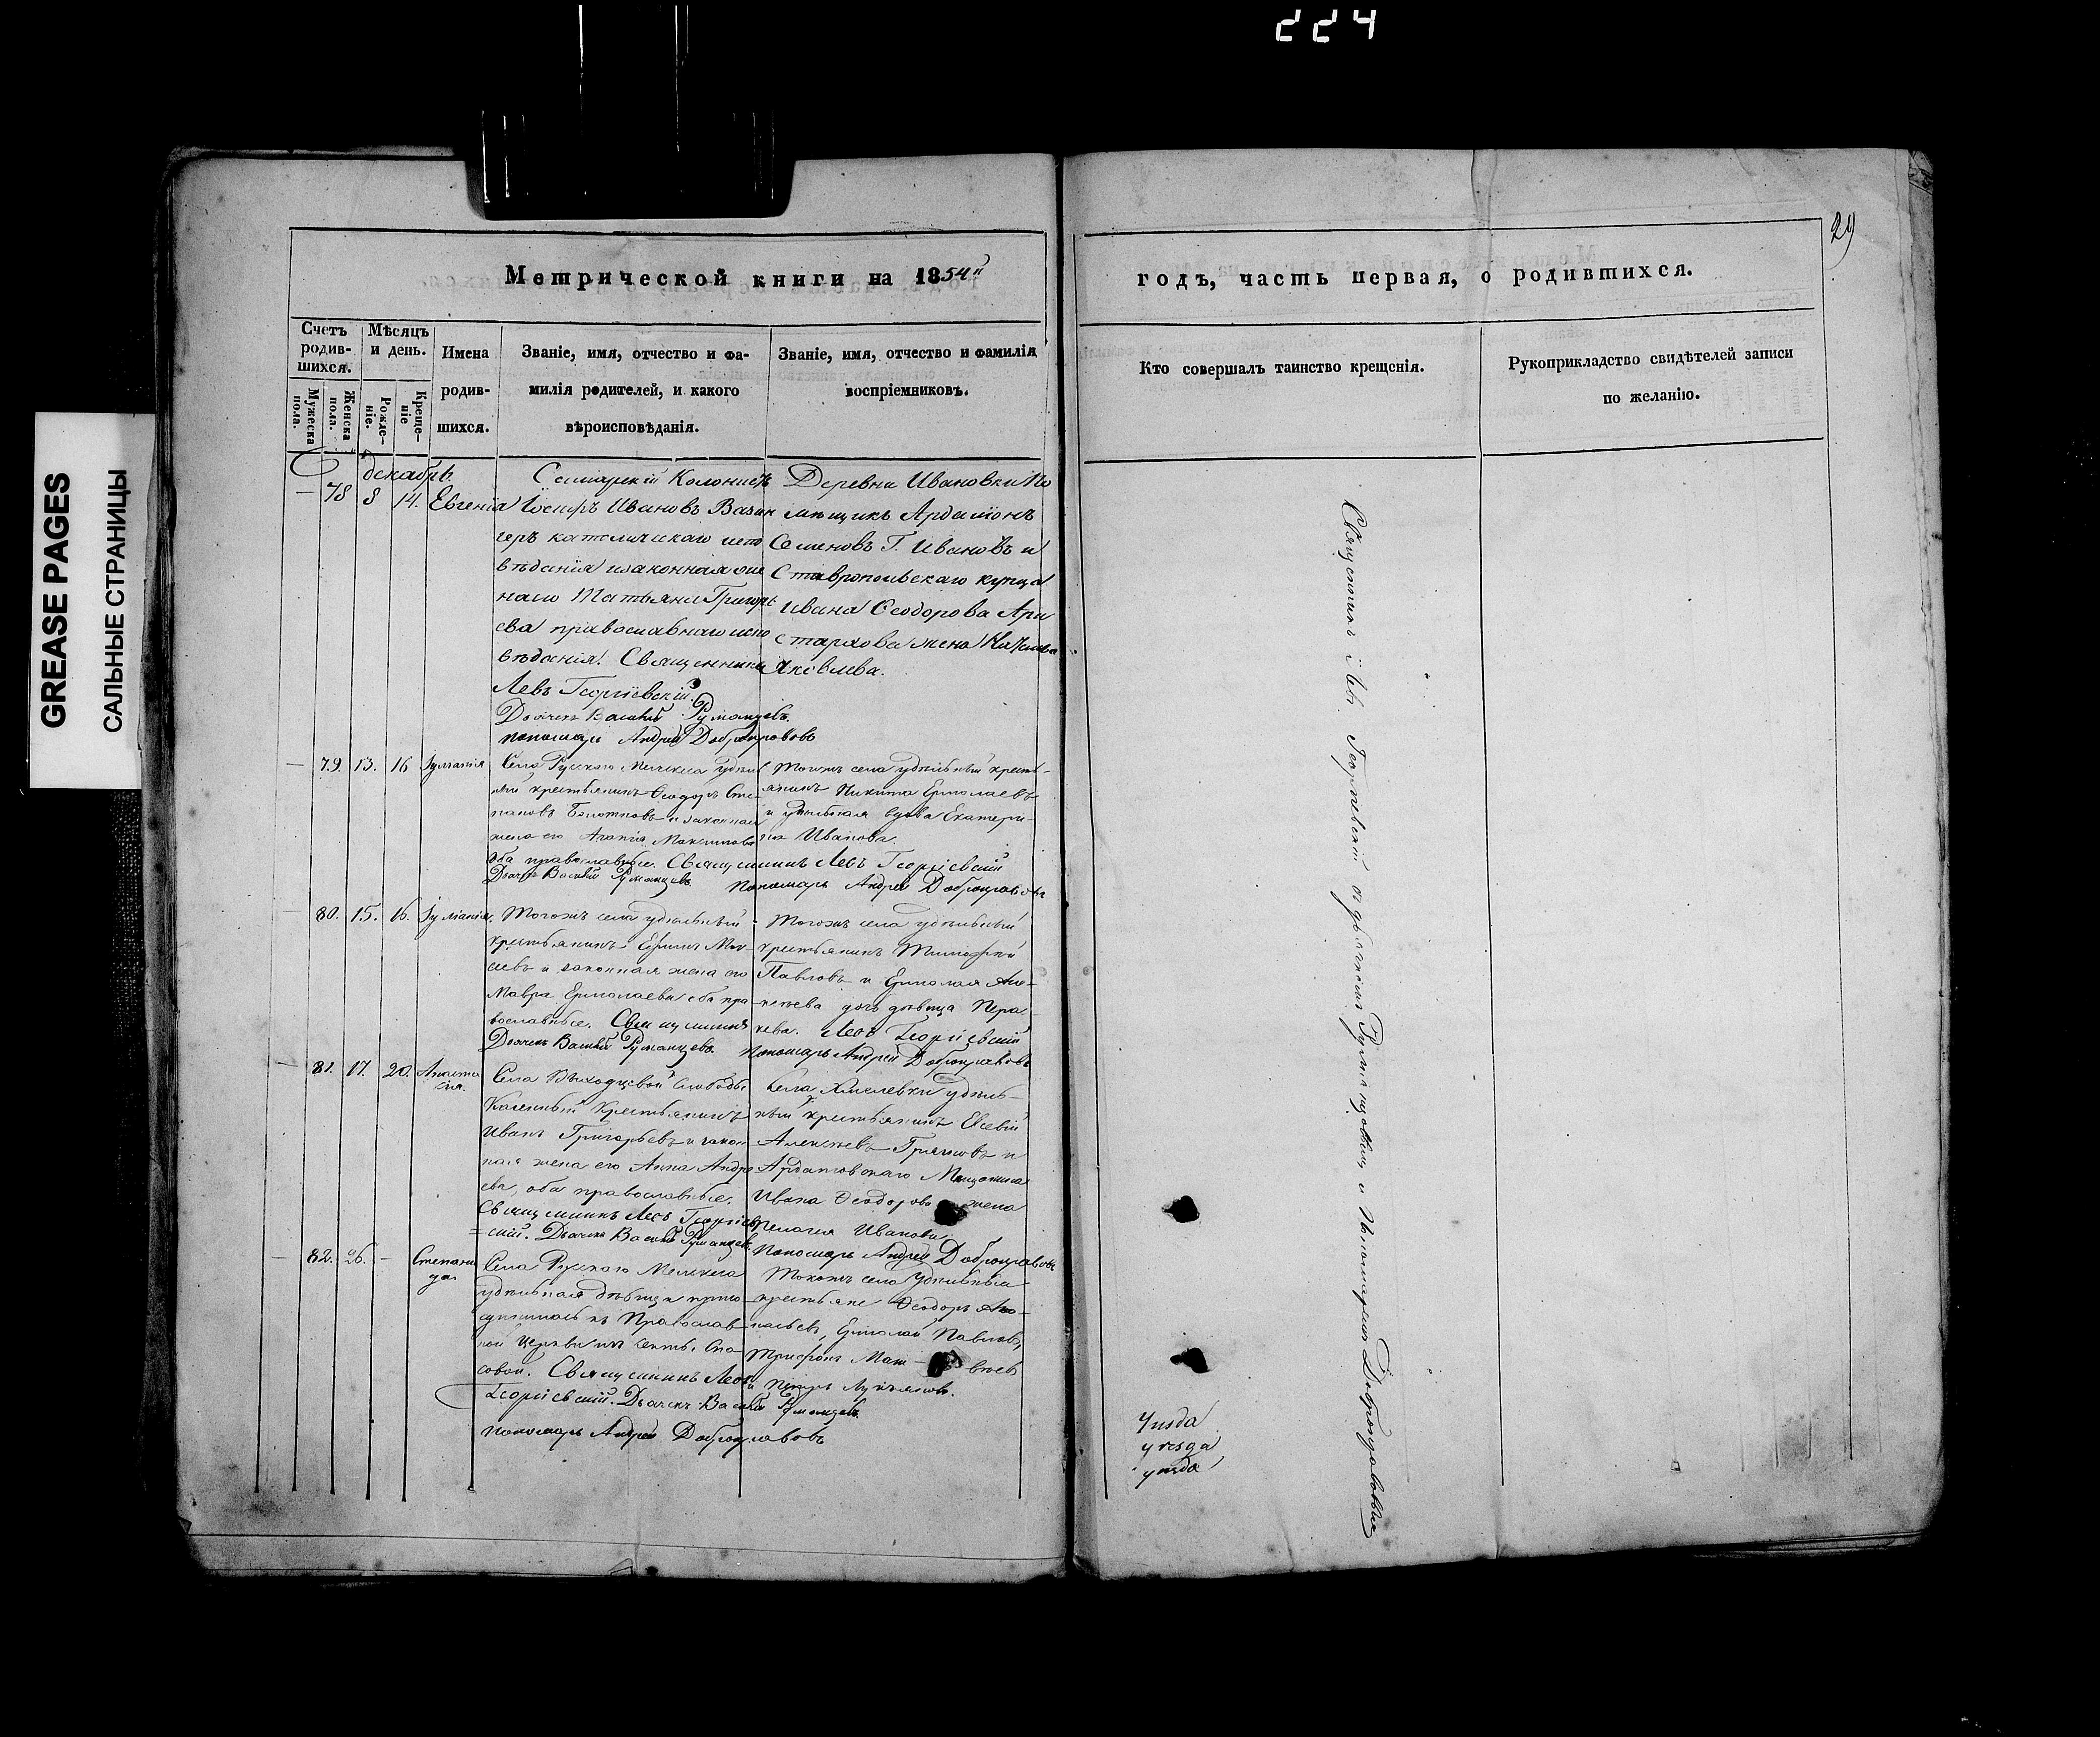 224
GREASE PAGES
САЛЬНЫЕ СТРАНИЦЫ
29
Метрической книги на 1854й
годъ, часть первая, о родившихся.
Счетъ родив-шихся.
Мужеска пола.
Женска пола.
Мѣсяцъ и день.
Рожде-ніе.
Креще-ніе
Имена
родив-
шихся.
Званіе, имя, отчество и фа-
милія родителей, и какого
вѣроисповѣданія.
Званіе, имя, отчество и фамилія
воспріемниковъ.
Кто совершалъ таинство крещенія.
Рукоприкладство свидѣтелей записи
по желанію.
декабрь
78 8 14. Евгенія
Колонистъ
Іосифъ Ивановъ
католическаго испо
вѣданія и законная жена
Татьяна Григорь
ева православнаго испо
вѣданія. Священникъ
Левъ Георгіевскій.
Дьячекъ Василій Румянцевъ
пономарь Андрей Добронравовъ
Деревни Ивановки По
мѣщикъ
Семеновъ Г. Ивановъ и
Ставропольскаго купца
Ивана Ѳеодорова Ари
стархова жена
Яковлева.
79. 13. 16 Іуліанія
Села Русскаго Мелекеса удѣль
ный крестьянинъ Ѳеодоръ Сте-
пановъ и законная
жена его
оба православные. Священникъ Левъ Георгіевскій
Дьячекъ Василій Румянцевъ Пономарь Андрей Добронравовъ
Тогожъ села удѣльный кресть-
янинъ Никита Ермолаевъ
и удѣльная вдова Екатери-
на Иванова.
80. 15. 16. Іуліанія.
Тогожъ села удѣльный
крестьянинъ
и законная жена его
Мавра Ермолаева оба пра
вославные. Священникъ
Дьячекъ Василій Румянцевъ
Тогожъ села удѣльный
крестьянинъ Тимофей
Павловъ и Ермолая Але-
ксѣева дочь дѣвица Пара
скева. Левъ Георгіевскій
Пономарь Андрей Добронравовъ
81. 17. 20. Анаста
сія.
Села Слободы
Казенный Крестьянинъ
Иванъ Григорьевъ и закон
ная жена его Анна Андре
ева, оба православные.
Священникъ Левъ Георгіев
скій. Дьячекъ Василій Румянцевъ.
Села Хмелевки удѣль-
ный крестьянинъ Евсевій
Алексѣевъ и
Ардатовскаго Мещанина
Ивана Ѳеодорова жена
Пелагія Иванова.
Пономарь Андрей Добронравовъ
82. 26. - Степани
да.
Села Русскаго Мелекеса
удѣльная дѣвица присо
единилась къ Православ-
ной Церкви изъ секты Спа
совой. Священникъ Левъ
Георгіевскій. Дьячекъ Василій Румянцевъ.
пономарь Андрей Добронравовъ
Тогожъ села Удѣльные
крестьяне Ѳеодоръ
Ермолай Павловъ,
Трифонъ Мат-вѣевъ
и Петръ Лукьяновъ.
Священникъ Левъ Георгіевскій съ дьячкомъ Румянцовымъ и Пономаремъ Добронравовымъ